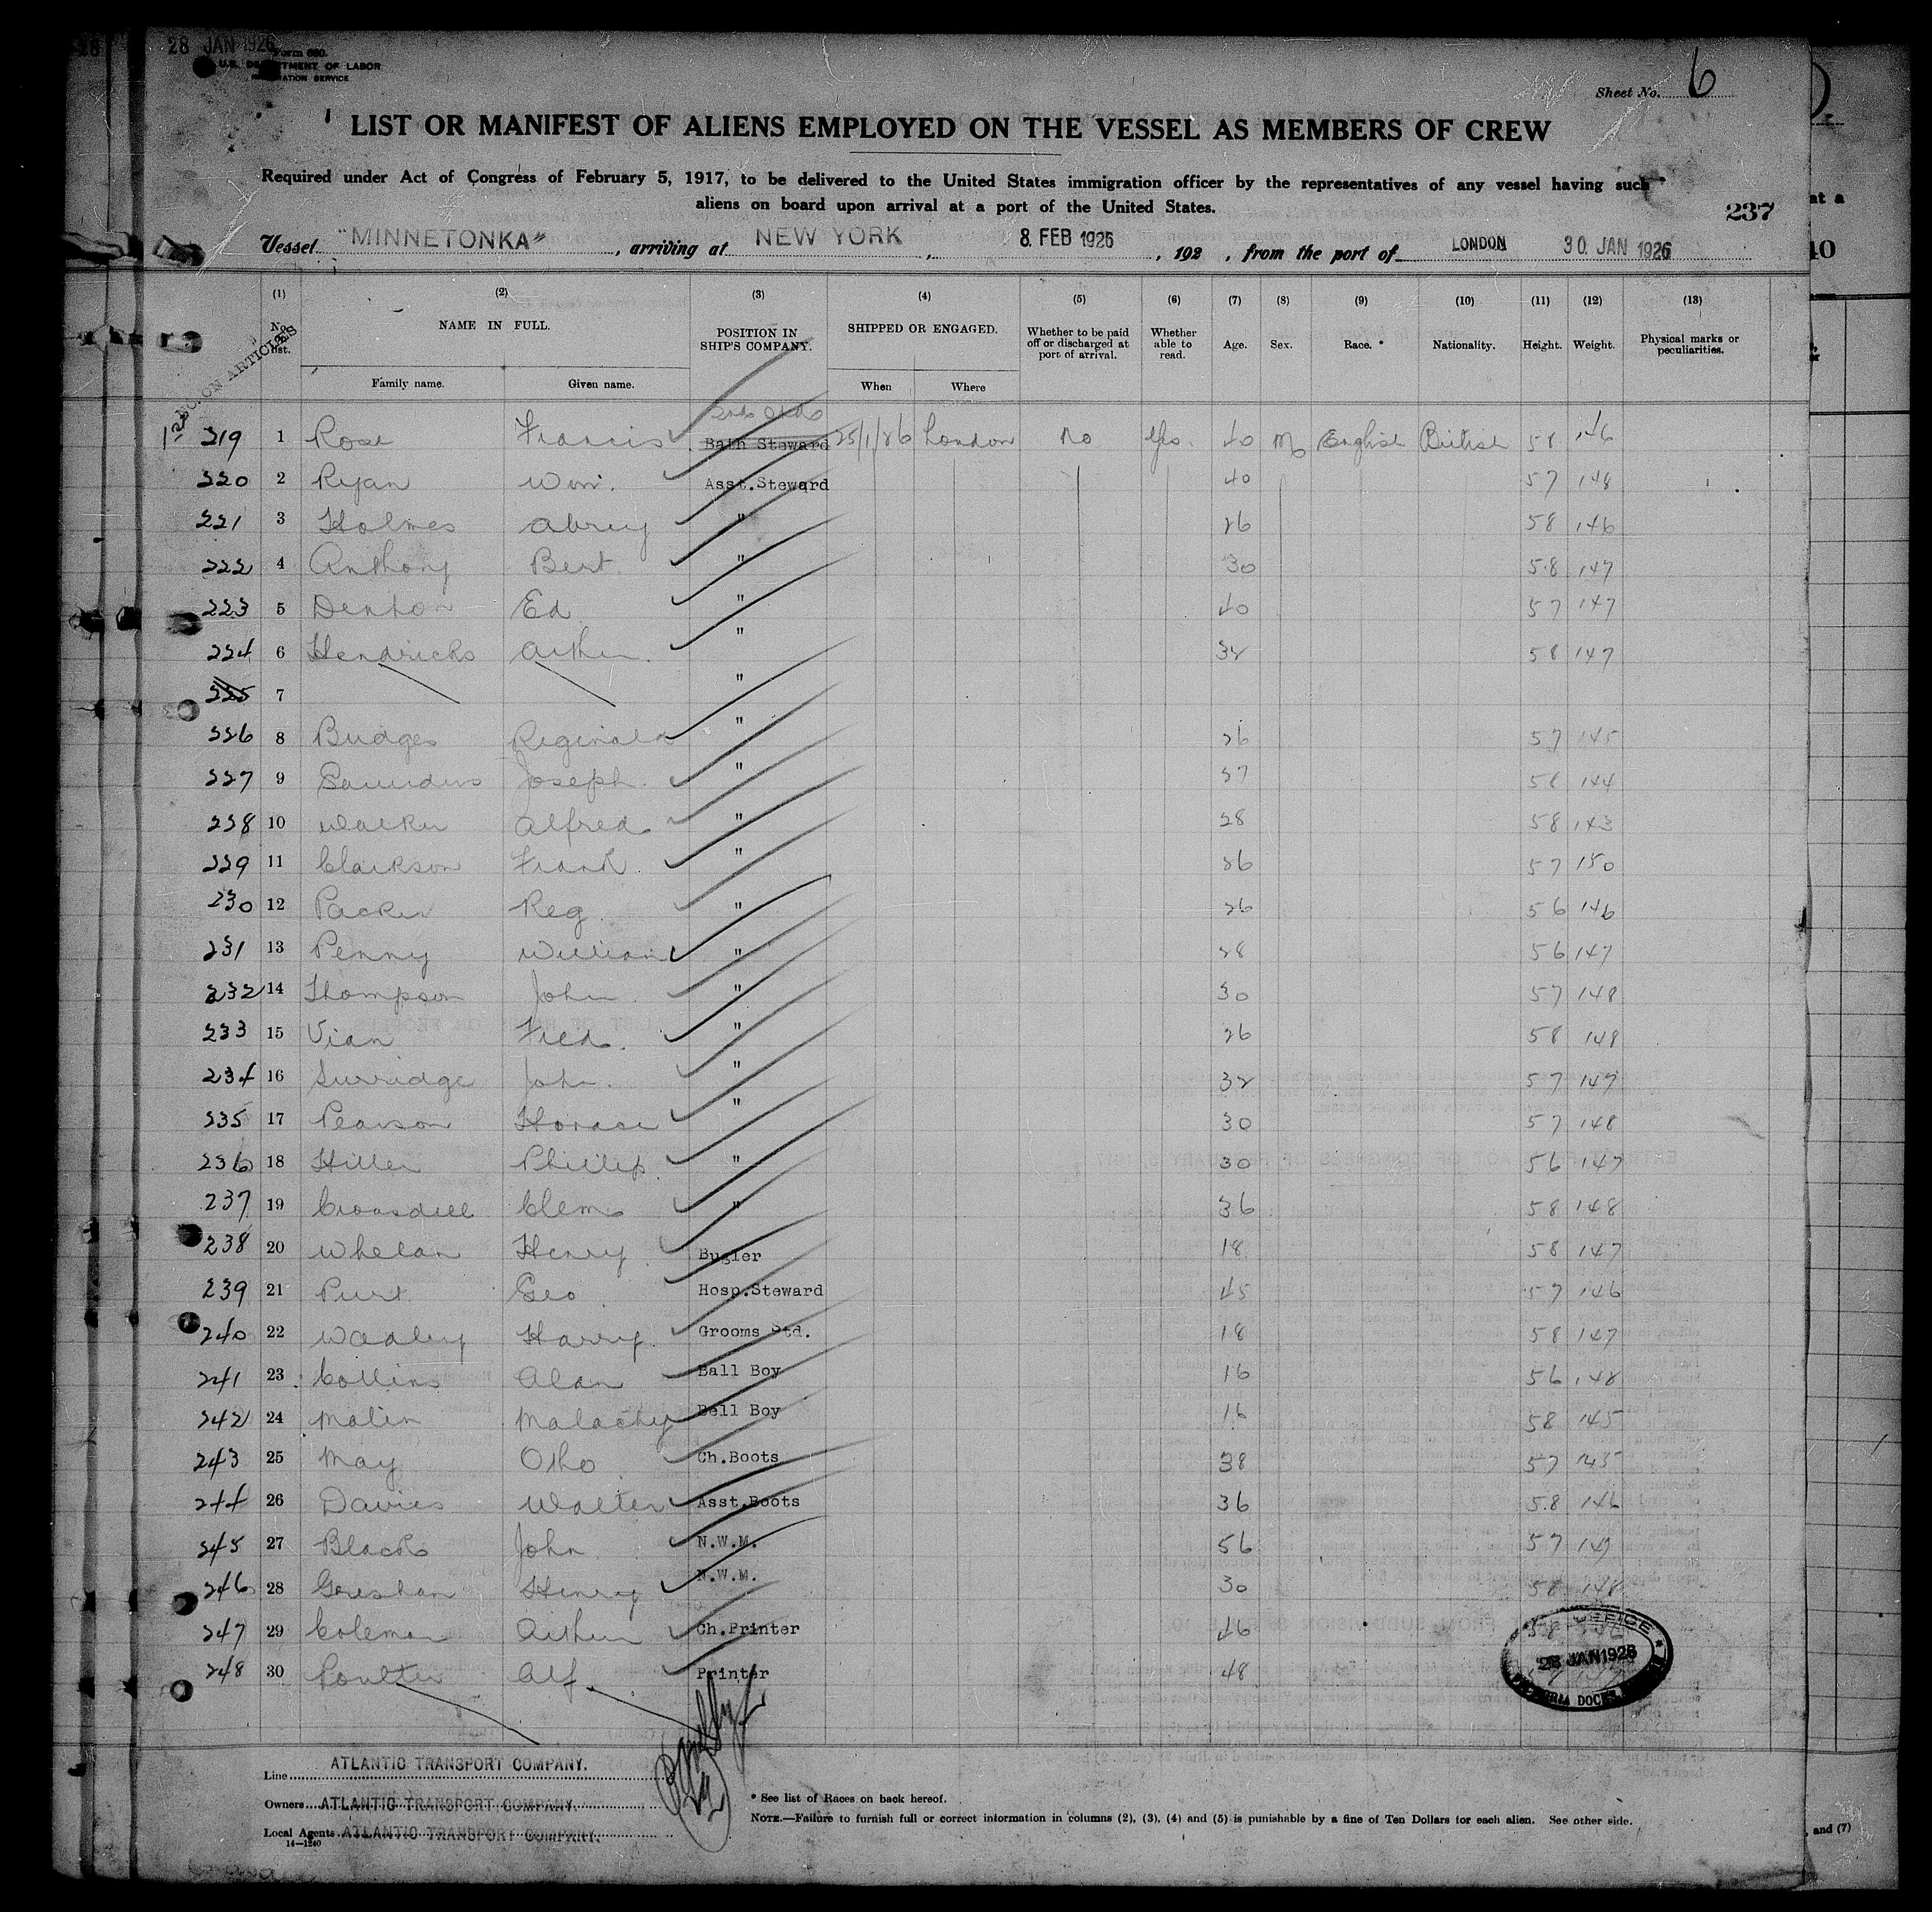 28 JAN 1926
Form 680.
U.S. DEPARTMENT OF LABOR
IMMIGRATION SERVICE
Sheet No. 6
LIST OR MANIFEST OF ALIENS EMPLOYED ON THE VESSEL AS MEMBERS OF CREW
Required under Act of Congress of February 5, 1917, to be delivered to the United States immigration officer by the representatives of any vessel having such
aliens on board upon arrival at a port of the United States.
237
Vessel "MINNETONKA", arriving at NEW YORK, 8 FEB 1926, 192 , from the port of LONDON 30 JAN 1926
(1) (2) (3) (4) (5) (6) (7) (8) (9) (10) (11) (12) (13)
NO. ON ARTICLES No. on list. NAME IN FULL. POSITION IN SHIP'S COMPANY. SHIPPED OR ENGAGED. Whether to be paid off or discharged at port of arrival. Whether able to read. Age. Sex. Race. * Nationality. Height. Weight. Physical marks or peculiarities.
Family name. Given name. When Where
219 1 Rose Francis Bath Steward 25/1/26 London No Yes. 40 M English British 58 146
220 2 Ryan Wm. Asst.Steward 40 57 148
221 3 Holmes Abrey " 26 58 146
222 4 Anthony Bert " 30 58 147
223 5 Denton Ed " 40 57 147
224 6 Hendricks Arthur " 32 58 147
225 7 "
226 8 Budges Reginald " 26 57 145
227 9 Saunders Joseph " 37 58 144
228 10 Walker Alfred " 28 58 143
229 11 Clarkson Frank " 26 57 150
230 12 Packer Reg " 26 56 146
231 13 Penny William " 28 56 147
232 14 Thompson John " 30 57 148
233 15 Vian Fred " 26 58 148
234 16 Surridge John " 32 57 147
235 17 Pearson Horace " 30 57 148
236 18 Hiller Phillip " 30 56 147
237 19 Croasdell Clem " 36 58 148
238 20 Whelan Henry Bugler 18 58 147
239 21 Purt Geo Hosp.Steward 45 57 146
240 22 Harry Grooms Std. 18 58 147
241 23 Collins Alan Ball Boy 16 56 148
242 24 Malin Malachy Bell Boy 16 58 145
243 25 May Otho Ch.Boots 38 57 145
244 26 Davies Walter Asst.Boots 36 58 146
245 27 Black John N.W.M. 56 57 149
246 28 Gresham Henry N.W.M. 30 58 148
247 29 Coleman Arthur Ch.Printer 46 58
248 30 Poulter Alf. Printer 48
28 JAN 1926
Line ATLANTIC TRANSPORT COMPANY.
Owners ATLANTIC TRANSPORT COMPANY.
Local Agents ATLANTIC TRANSPORT COMPANY.
14—1240
* See list of Races on back hereof.
NOTE.—Failure to furnish full or correct information in columns (2), (3), (4) and (5) is punishable by a fine of Ten Dollars for each alien. See other side.
, and (7)